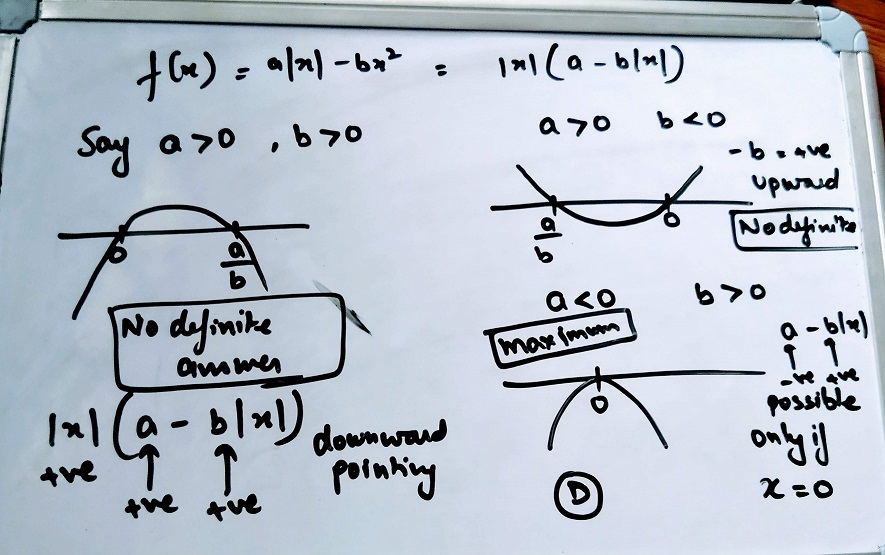 f(x) = a|x| - bx² = |x|(a - b|x|)
Say a>0 , b>0
0
a/b
No definite
answer
|x|(a - b|x|)
+ve
+ve +ve
downward
pointing
a>0 b<0
-b = +ve
upward
a/b
0
No definite
a<0 b>0
maximum
0
D
a - b|x|
-ve +ve
possible
only if
x=0